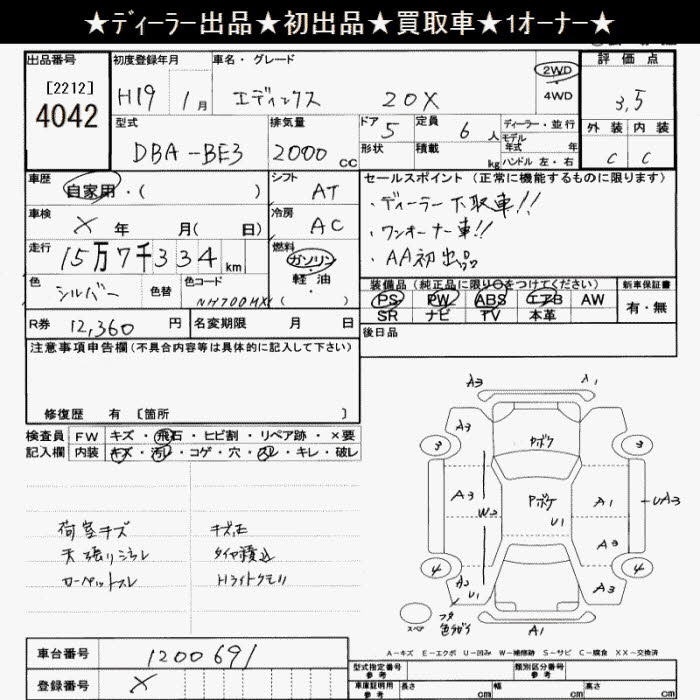 ★ディーラー出品★初出品★買取車★1オーナー★
出品番号
[2212]
4042
初度登録年月
H19 1月
車名・グレード
エディックス 20X
2WD
4WD
評価点
3.5
外装 内装
C C
型式
DBA-BE3
排気量
2000 CC
ドア 5
形状
定員 6人
積載 kg
ディーラー・並行
モデル年式 年
ハンドル 左・右
車歴
自家用・( )
シフト
AT
車検
X 年 月( 日)
冷房
AC
走行
15万7千334 km
燃料
ガソリン
軽油
( )
色
シルバー
色替
色コード
NH700MX
R券 12,360 円
名変期限 月 日
セールスポイント(正常に機能するものに限ります)
・ディーラー下取車!!
・ワンオーナー車!!
・AA初出品
装備品(純正品に限り○をつけてください)
PS PW ABS エアB AW
SR ナビ TV 本革
新車保証書
有・無
後日品
注意事項申告欄(不具合内容等は具体的に記入して下さい)
修復歴 有 〔箇所 〕
検査員記入欄
FW キズ・飛石・ヒビ割・リペア跡・×要
内装 キズ・汚レ・コゲ・穴・スレ・キレ・破レ
荷室キズ
天張リシミ
キズ正
タイヤ積込
Hライトクモリ
A3 A1
A3
3 3
Pボケ
A3
W3
Pボケ
U1
A1
UA3
A3
4 4
A2
U1
A3
スペア
フタ
色ちがい
A1
A-キズ E-エクボ U-凹み W-補修跡 S-サビ C-腐食 XX-交換済
車台番号 1200691
登録番号 X
型式指定番号
参考
類別区分番号
参考
車庫証明用
参考
長さ cm 幅 cm 高さ cm